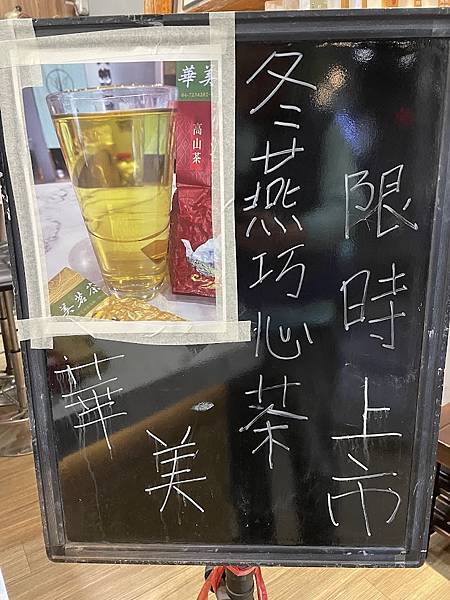 限時上市
冬燕巧心茶
華美
華美
高山茶
美茗茶